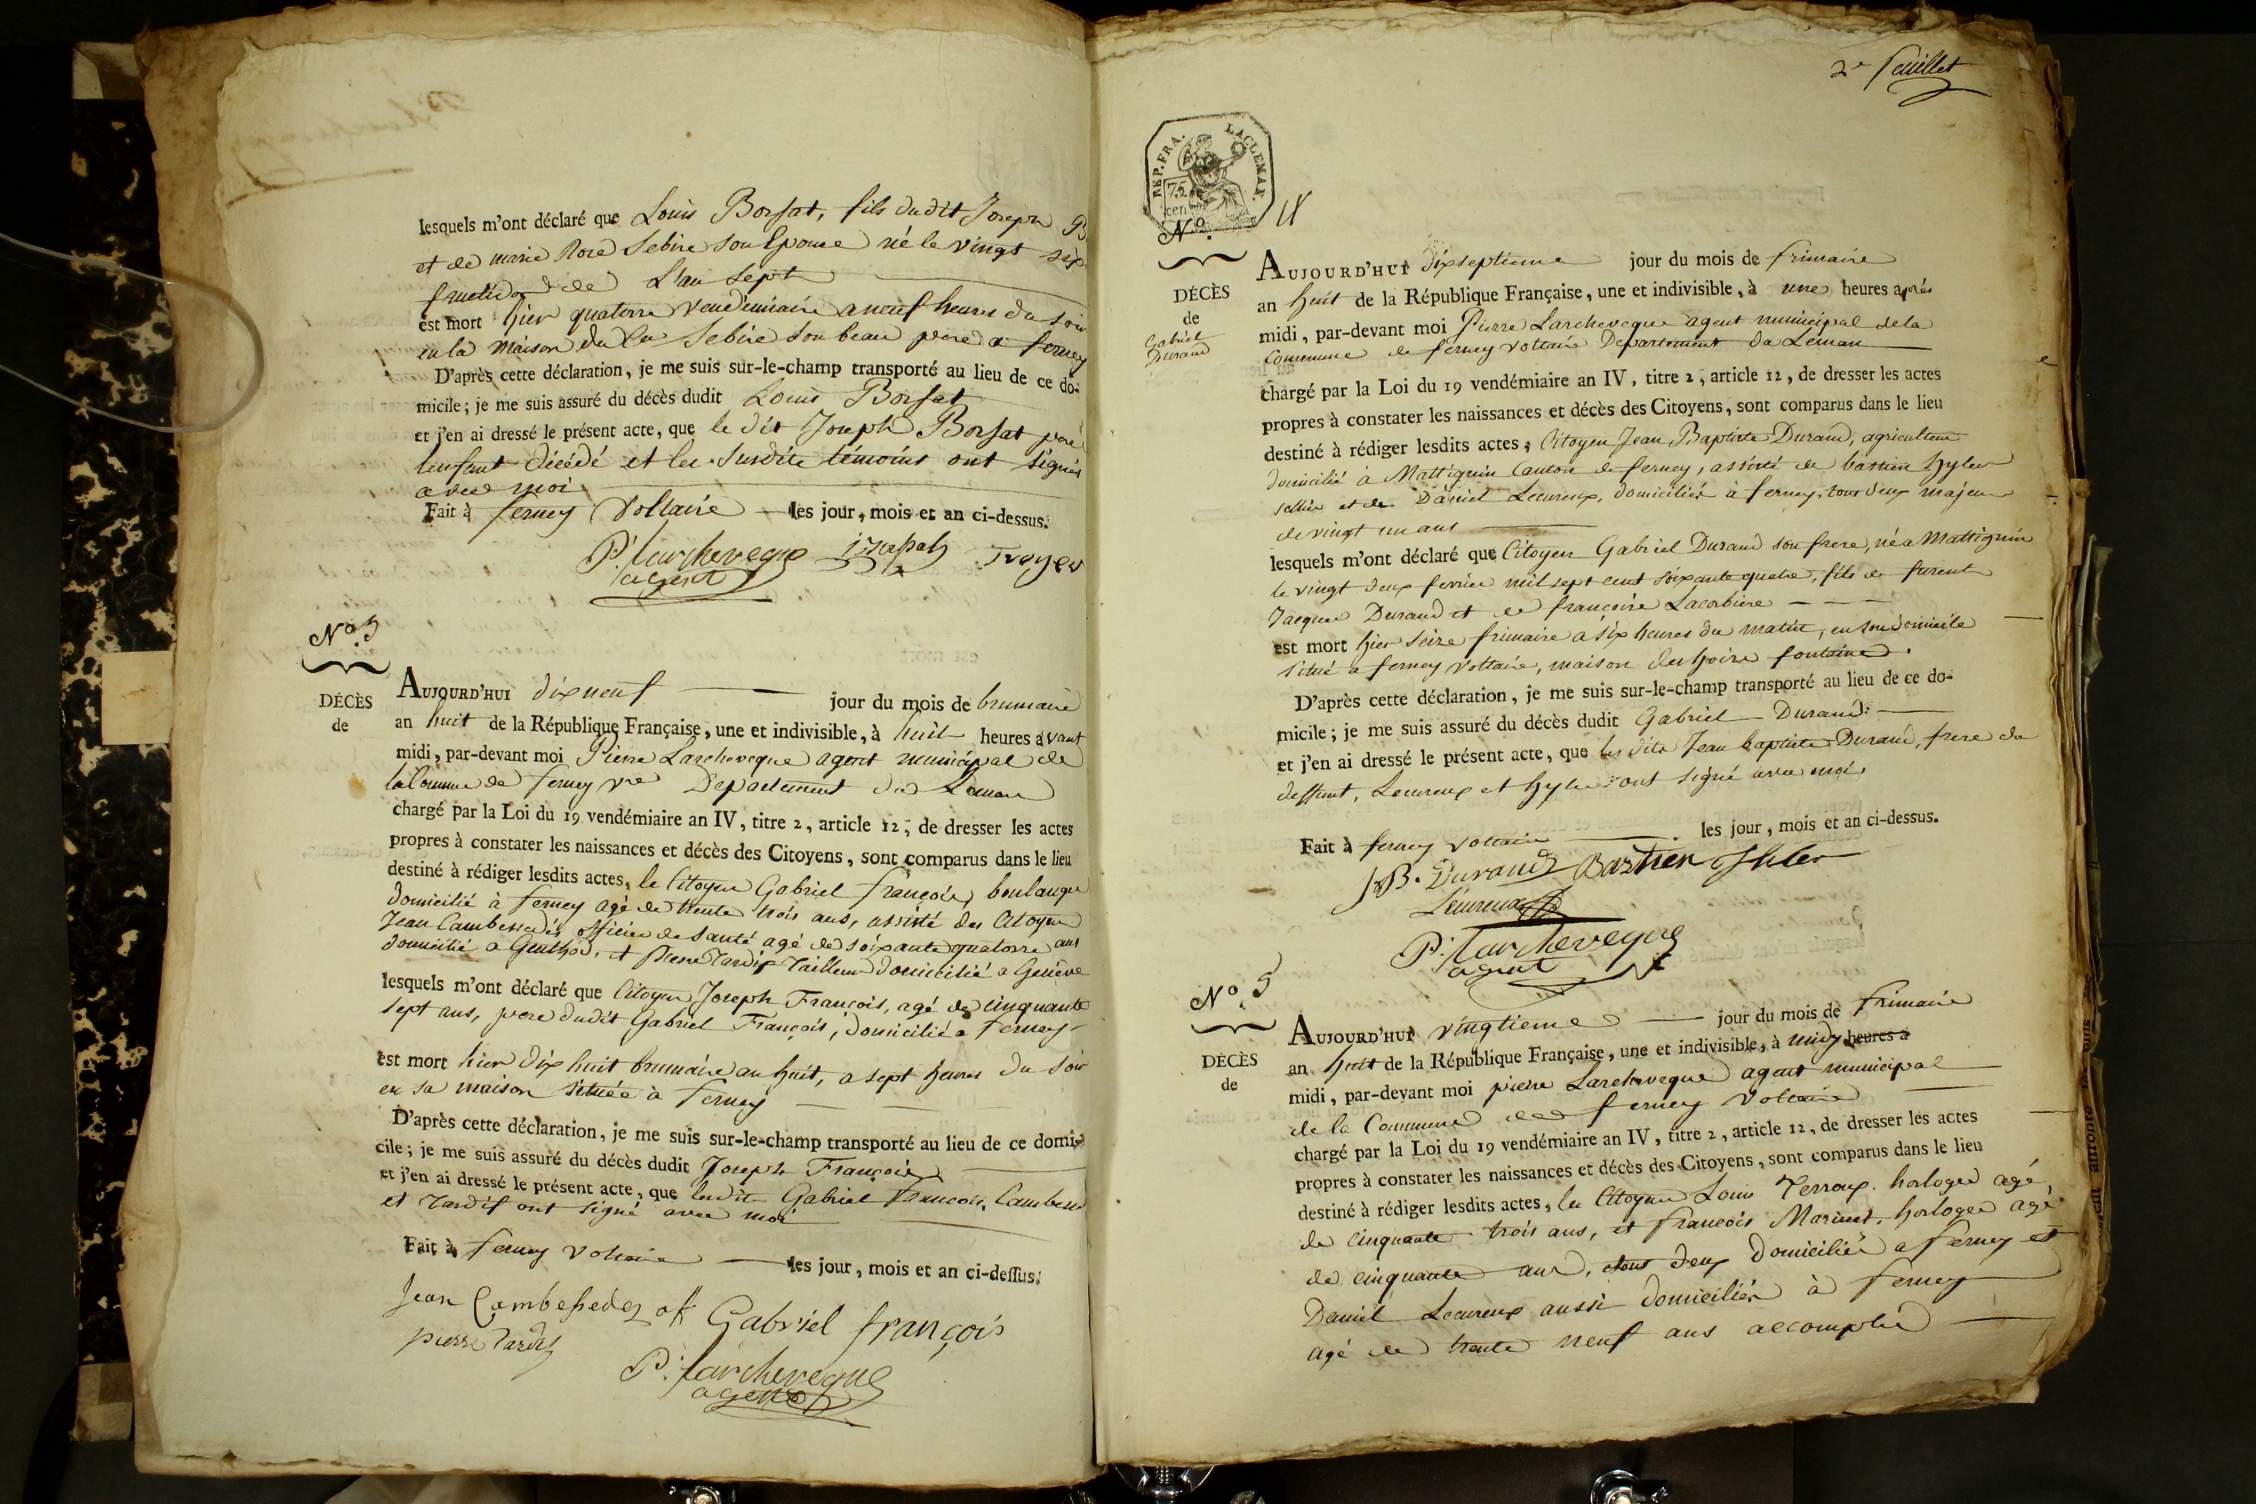 lesquels m'ont déclaré que Louis Borsat, fils dudit Joseph B
et de marie Rose Sebire son Epouse né le vingt six
fructidor de L'an sept
est mort hier quatorze vendémiaire a neuf heures du soir
en la maison du Sebire son beau pere a ferney
D'après cette déclaration, je me suis sur-le-champ transporté au lieu de ce do-
micile; je me suis assuré du décès dudit Louis Borsat
et j'en ai dressé le présent acte, que le dit Joseph Borsat pere
lenfant décédé et les susdits témoins ont signés
avec moi
Fait à ferney Voltaire les jour, mois et an ci-dessus.
P. Larcheveque Troyer
agent
No. 3
DÉCÈS
de
AUJOURD'HUI dixneuf jour du mois de brumaire
an huit de la République Française, une et indivisible, à huit heures avant
midi, par-devant moi Pierre Larcheveque agent municipal de
la Comune de ferney vre Departement du Leman
chargé par la Loi du 19 vendémiaire an IV, titre 2, article 12, de dresser les actes
propres à constater les naissances et décès des Citoyens, sont comparus dans le lieu
destiné à rédiger lesdits actes, le Citoyen Gabriel françois, boulanger
domicilié à ferney agé de trente trois ans, assisté des Citoyens
Jean Cambessedés officier de santé agé de soixante quatorze ans
domicilié a Genthod, et Pierre Tardif Tailleur domicilié a Genève
lesquels m'ont déclaré que Citoyen Joseph François, agé de cinquante
sept ans, pere dudit Gabriel François, domicilié a ferney
est mort hier dix huit brumaire an huit, a sept heures du soir
en sa maison située à ferney
D'après cette déclaration, je me suis sur-le-champ transporté au lieu de ce domi-
cile; je me suis assuré du décès dudit Joseph François
et j'en ai dressé le présent acte, que lesdits Gabriel Francois, Cambess
et Tardif ont signé avec moi
Fait à ferney Voltaire les jour, mois et an ci-dessus.
Jean Cambessedes Gabriel françois
pierre Tardif
P. Larcheveque
agent
2e feuillet
REP. FRA. LAC LEMAN.
75
cen
No. 4
DÉCÈS
de
Gabriel
Durand
AUJOURD'HUI dixseptieme jour du mois de frimaire
an huit de la République Française, une et indivisible, à une heures après
midi, par-devant moi Pierre Larcheveque agent municipal de la
Commune de ferney Voltaire Departement du Leman
chargé par la Loi du 19 vendémiaire an IV, titre 2, article 12, de dresser les actes
propres à constater les naissances et décès des Citoyens, sont comparus dans le lieu
destiné à rédiger lesdits actes, Citoyen Jean Baptiste Durand, agriculteur
domicilié à Mattignin Canton de ferney, assisté de bastien hyler
sellier et de Daniel Lecureux, domiciliés à ferney, tous deux majeurs
de vingt un ans
lesquels m'ont déclaré que Citoyen Gabriel Durand son frere, né a Mattignin
le vingt deux fevrier mil sept cent soixante quatre, fils de furent
Jacques Durand et de françoise Lacorbiere
est mort hier seize frimaire a six heures du matin, en son domicile
situé a ferney Voltaire, maison des hoirs fontaine.
D'après cette déclaration, je me suis sur-le-champ transporté au lieu de ce do-
micile; je me suis assuré du décès dudit Gabriel Durand
et j'en ai dressé le présent acte, que les dits Jean baptiste Durand, frere du
deffunt, Lecureux et hyler ont signé avec moi.
Fait à ferney Voltaire les jour, mois et an ci-dessus.
J. B. Durand Bastien
Lecureux
P. Larcheveque
agent
No. 5
DÉCÈS
de
AUJOURD'HUI vingtieme jour du mois de frimaire
an huit de la République Française, une et indivisible, à midy heures a
midi, par-devant moi pierre Larcheveque agent municipal
de la Commune de ferney Voltaire
chargé par la Loi du 19 vendémiaire an IV, titre 2, article 12, de dresser les actes
propres à constater les naissances et décès des Citoyens, sont comparus dans le lieu
destiné à rédiger lesdits actes, les Citoyens Louis Terroux horloger agé
de cinquante trois ans, et francois Marinet, horloger agé
de cinquante ans, tous deux domiciliés a ferney et
Daniel Lecureux aussi domicilié à ferney
agé de trente neuf ans accomplis